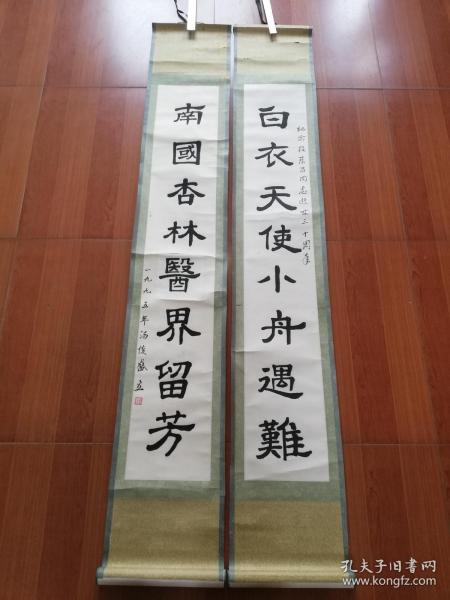 白衣天使小舟遇難
同志逝世三十周年
南國杏林醫界留芳
一九九五年
孔夫子旧书网
www.kongfz.com